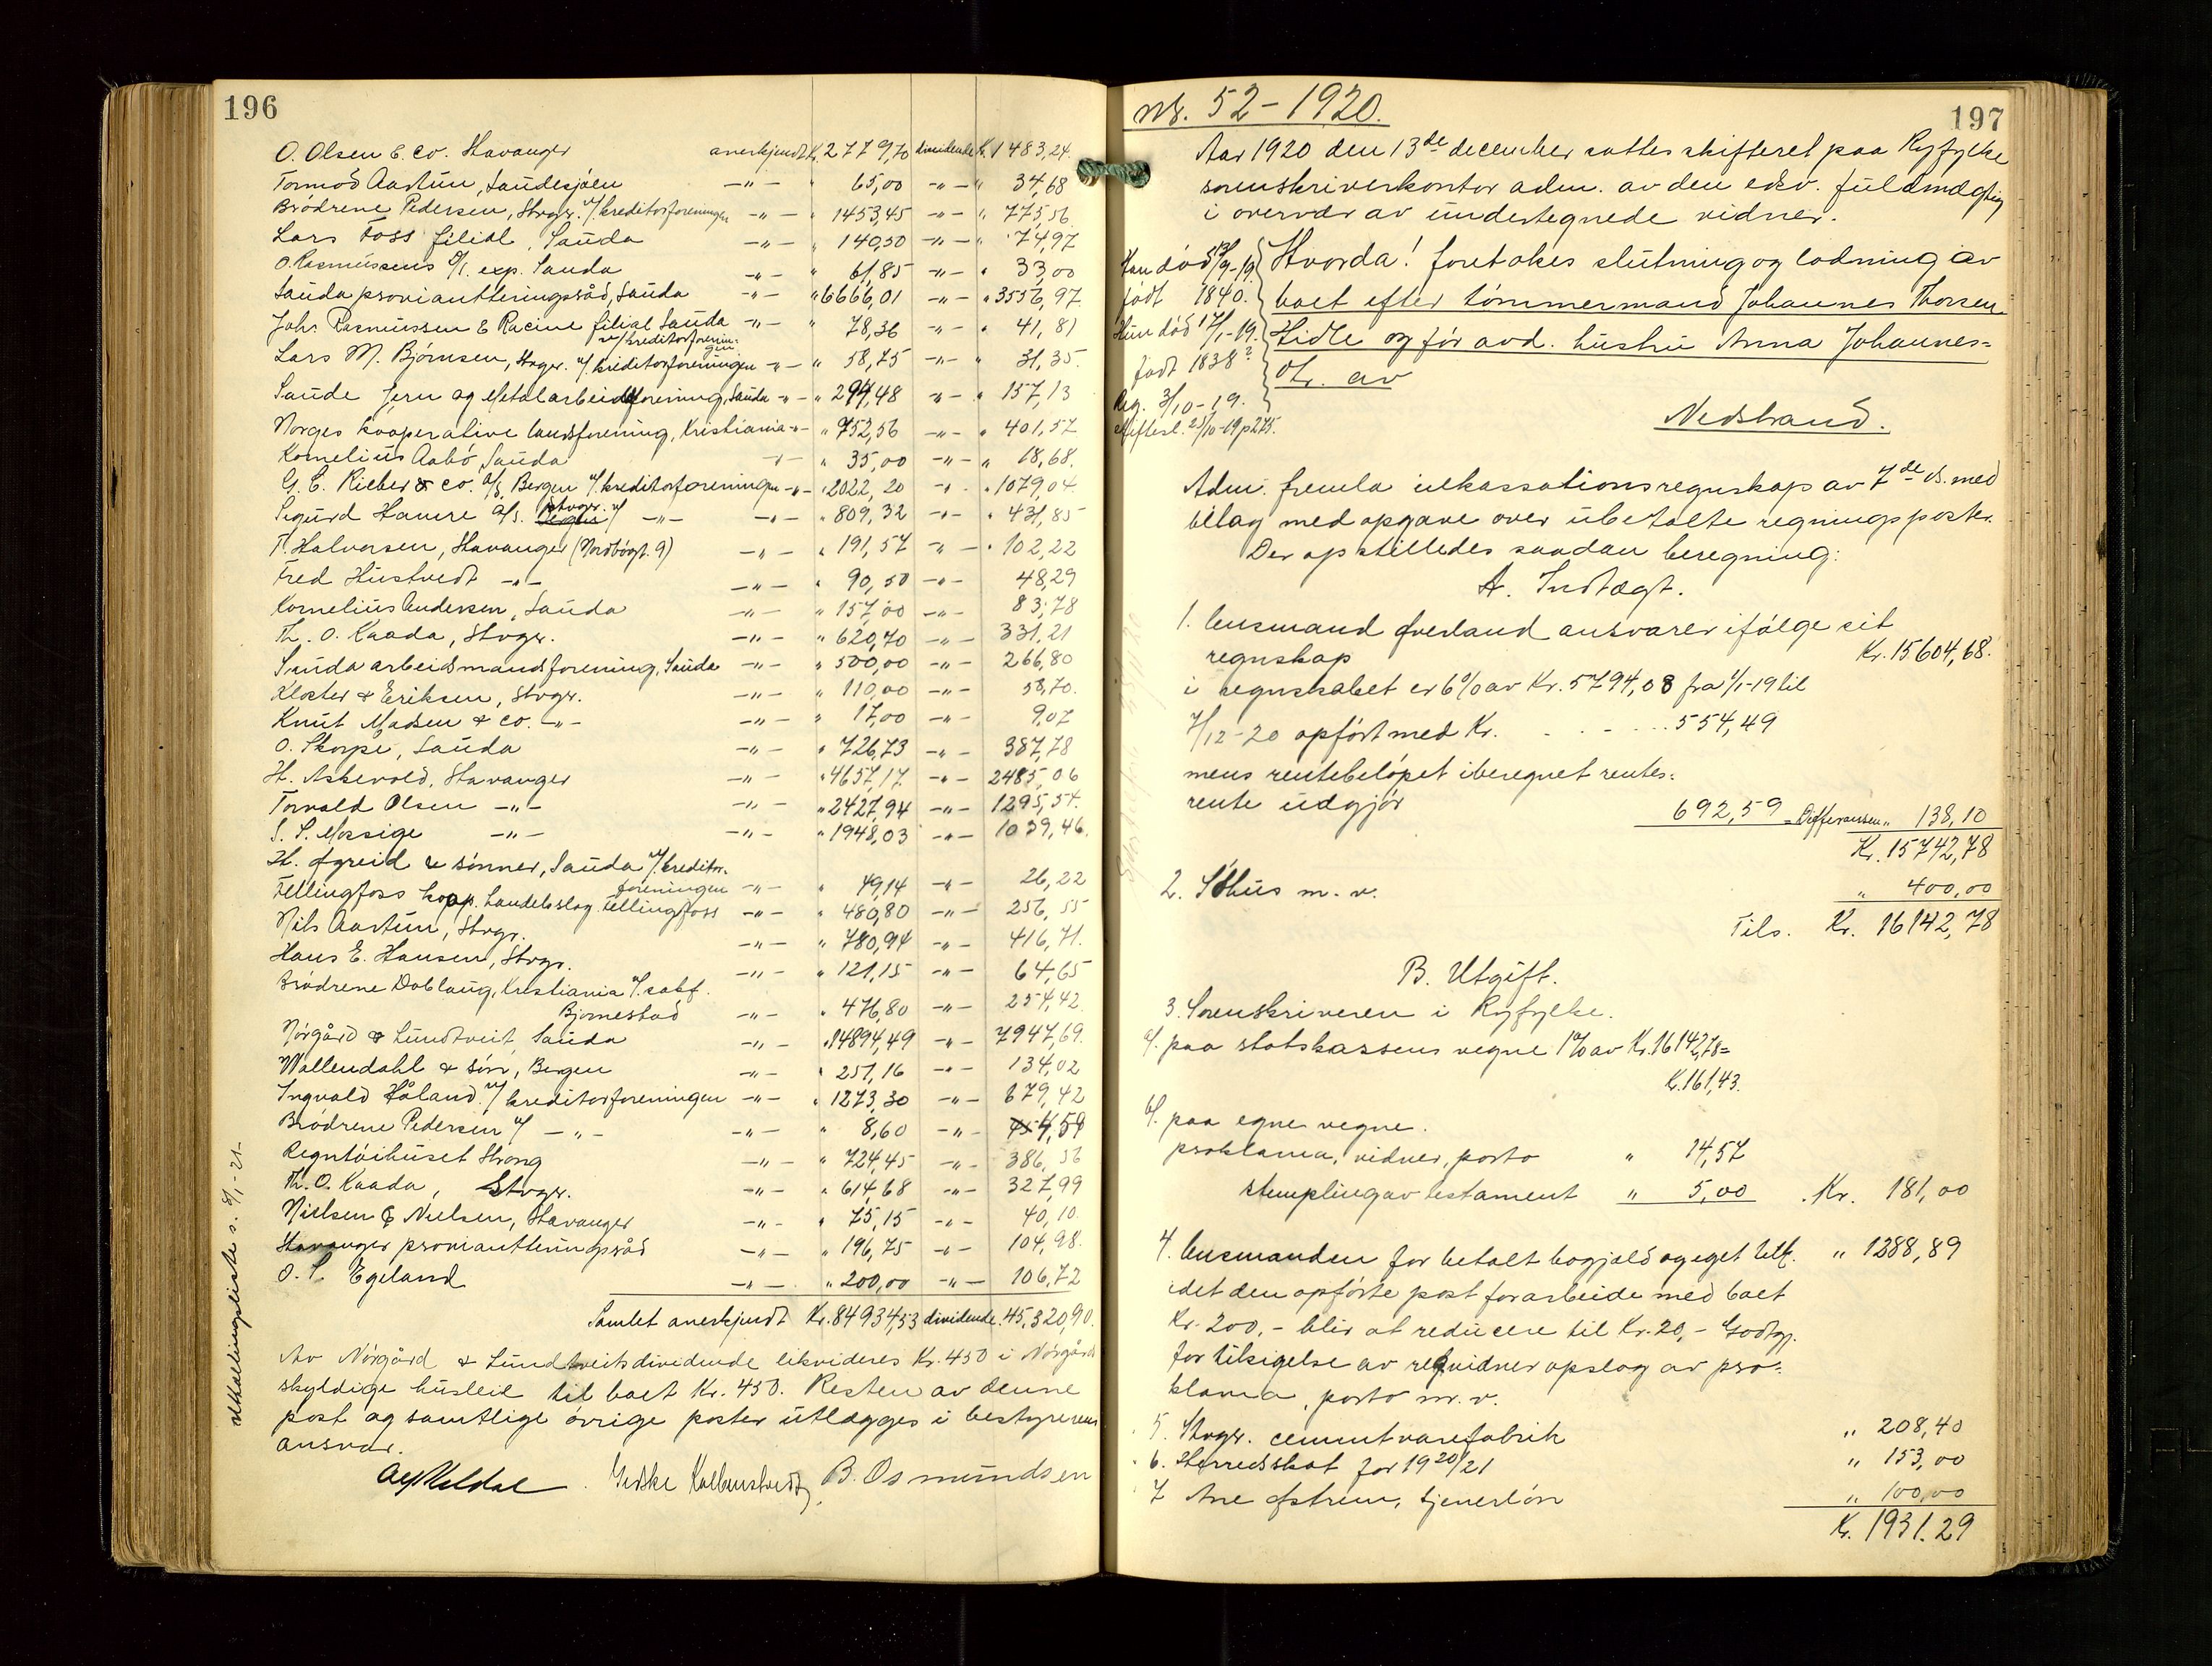 196
O. Olsen & Co. Stavanger anerkjendt Kr. 2779,70 dividende Kr. 1483,24.
Tormod Aartun, Saudesjøen -"- " 65,00 -"- " 34,68
Brødrene Pedersen, Stvgr. v/ kreditorforeningen -"- " 1453,45 -"- " 775,56
Lars Foss filial, Sauda -"- " 140,50 -"- " 74,97
O. Rasmussens exp. Sauda -"- " 61,85 -"- " 33,00
Sauda provianteringsråd, Sauda -"- " 6666,01 -"- " 3556,97
Johs Rasmussen & Racine filial Sauda -"- " 78,36 -"- " 41,81
v/ kreditorforeningen
Lars M. Bjørnsen, Stvgr. v/ kreditorforeningen -"- " 58,75 -"- " 31,35
Saude Jern og Metalarbeiderforening, Sauda -"- " 294,48 -"- " 157,13
Norges kooperative landsforening, Kristiania -"- " 752,56 -"- " 401,57
Kornelius Aabø, Sauda -"- " 35,00 -"- " 18,68.
G. C. Rieber & Co. A/S, Bergen v/ kreditorforeningen -"- " 2022,20 -"- " 1079,04
Sigurd Hamre A/S. Stvgr. v/ -"- -"- " 809,32 -"- " 431,85
T. Halvorsen, Stavanger (Nordbøgt. 9) -"- " 191,57 -"- " 102,22
Fred Hustvedt -"- -"- " 90,50 -"- 48,29
Kornelius Andersen, Sauda -"- " 157,00 -"- 83,78
Th. O. Kaada, Stvgr. -"- " 620,70 -"- 331,21
Sauda arbeidsmandsforening, Sauda -"- " 500,00 -"- 266,80
Kloster & Eriksen, Stvgr. -"- " 110,00 -"- 58,70.
Knut Madsen & Co. -"- -"- " 17,00 -"- 9,07
O. Skorpe, Sauda -"- " 726,73 -"- 387,78
H. Askevold, Stavanger -"- " 4657,17 -"- 2485,06
Torvald Olsen -"- -"- " 2427,94 -"- 1295,54.
S. S. Mossige -"- -"- " 1948,03 -"- 1039,46.
H. & sønner, Sauda v/ kreditor-
foreningen -"- " 49,14 -"- 26,22
Fellingfoss koop. handelslag Fellingfoss -"- " 480,80 -"- 256,55
Nils Aartun, Stvgr. -"- " 780,94 -"- 416,71.
Hans E. Hansen, Stvgr. -"- " 121,15 -"- 64,65
Brødrene Dobloug, Kristiania v/ sakf.
Bjørnestad -"- " 476,80 -"- 254,42
Nørgård & Lundtveit, Sauda -"- " 14894,49 -"- 7947,69.
Wallendahl & søn, Bergen -"- " 251,16 -"- 134,02
Ingvald Håland v/ kreditorforeningen -"- " 1273,30 -"- 679,42
Brødrene Pedersen v/ -"- -"- " 8,60 -"- 4,59
Regntøihuset Strong -"- " 724,45 -"- 386,56
Th. O. Kaada, Stvgr. -"- " 614,68 -"- 327,99
Nielsen & Nielsen, Stavanger -"- " 75,15 -"- 40,10.
Stavanger provianteringsråd -"- " 196,75 -"- 104,98.
O. S. Egeland -"- " 200,00 -"- 106,72
Samlet anerkjendt Kr. 84934,53 dividende. 45,320,90.
Av Nørgård & Lundtveits dividende likvideres Kr. 450 i Nørgårds
skyldige husleie til boet Kr. 450. Resten av denne
post og samtlige øvrige poster utlægges i bestyrerens
ansvar.
Gidske Kolbenstvedt B. Osmundsen
utbetalingsliste s. 8/1-21-
197
Nr. 52 - 1920.
Aar 1920 den 13de december sattes skifteret paa Ryfylke
sorenskriverkontor adm. av den edsv. fuldmægtig
i overvær av undertegnede vidner.
Han død 13/9-19
født 1840.
Hun død 17/1-19.
født 1838?
Reg. 3/10-19.
skiftesl. 25/10-19 p 275.
Hvorda! foretokes slutning og lodning av
boet efter tømmermand Johannes Thorsen
Hidle og før avd. hustru Anna Johannes-
dtr. av
Nedstrand.
Adm. fremla inkassationsregnskap av 7de ds. med
bilag med opgave over ubetalte regningsposter.
Der opstilledes saadan beregning:
A. Indtægt.
1. Lensmand Øverland ansvarer ifølge sit
regnskap Kr. 15604,68.
i regnskabet er 6% av Kr. 5794,08 fra 1/1-19 til
7/12-20 opført med Kr. . . . . . 554,49
mens rentebeløpet iberegnet rentes-
rente utgjør 692,59 Differensen " 138,10
Kr. 15742,78
2. Søhus m. v. " 400,00
Tils. Kr. 16142,78
B. Utgift.
3. Sorenskriveren i Ryfylke.
a/. paa statskassens vegne 1% av Kr. 16142,78=
Kr. 161,43.
b/. paa egne vegne.
proklama, vidner, porto " 14,57
stempling av testament " 5,00 . Kr. 181,00
4. Lensmanden for betalt bogjæld og eget tilk. " 1288,89
idet den opførte post for arbeide med boet
Kr. 200,- blir at reducere til Kr. 20,- Godtgj.
for tilsigelse av retsvidner opslag av pro-
klama, porto m. v.
5. Stvgr. cementvarefabrik " 208,40
6. Herredsskat for 1920/21 " 153,00
7 Ane Østrem, tjenerløn " 100,00
Kr. 1931.29